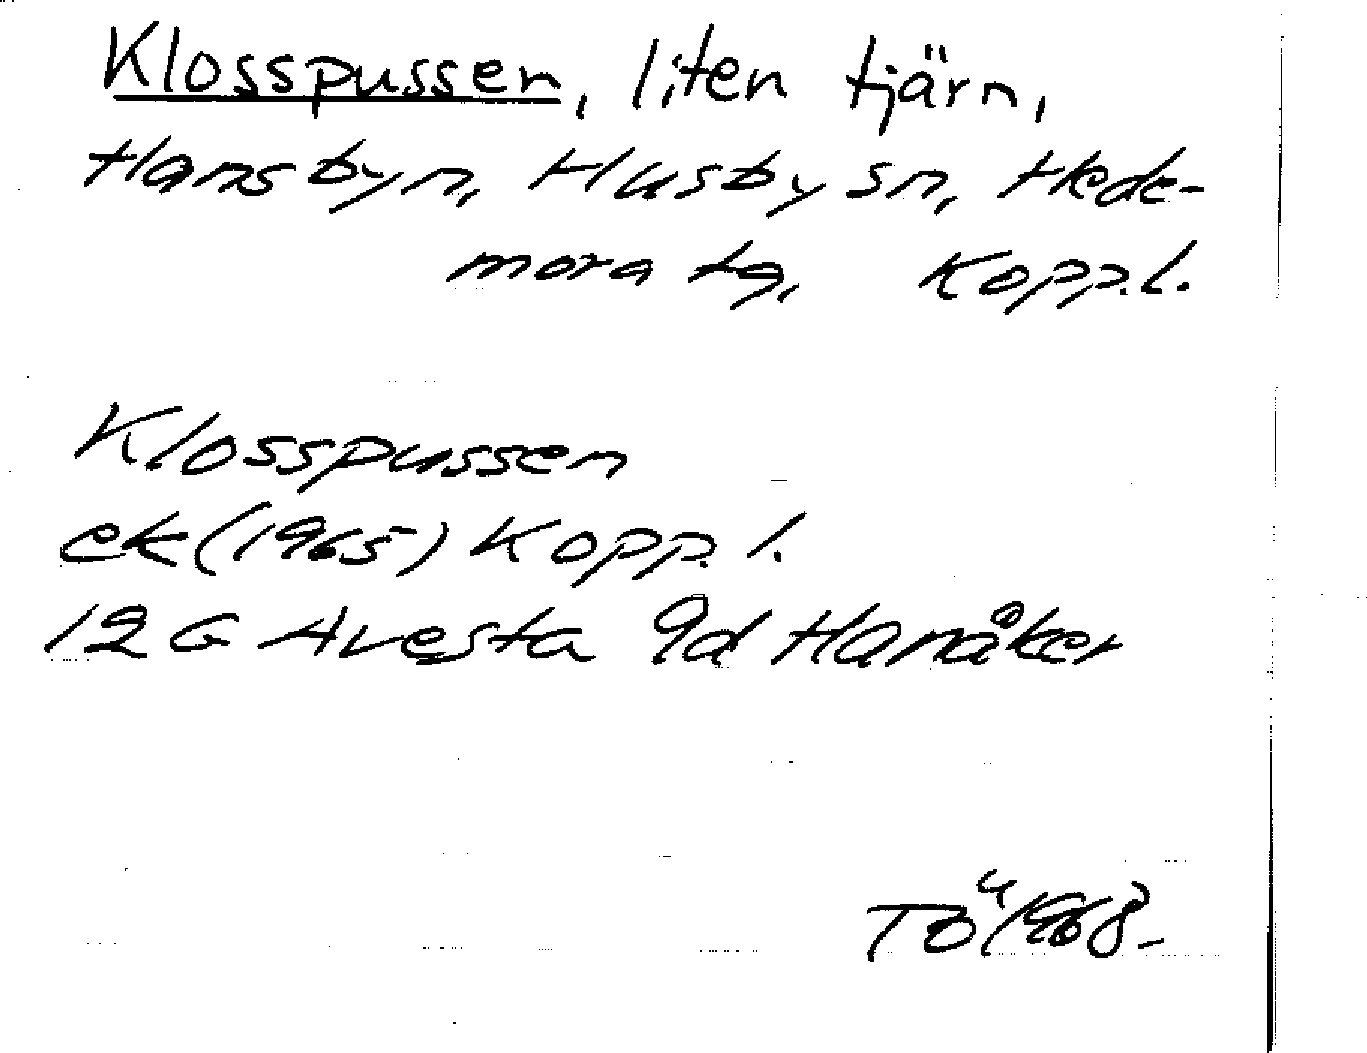 Klosspussen, liten tjärn,
Hansbyn, Husby sn, Hede-
mora tg, Kopp.l.
Klosspussen
ek (1965) Kopp. l.
12 G Avesta 9d Hanåker
TÖ 1968